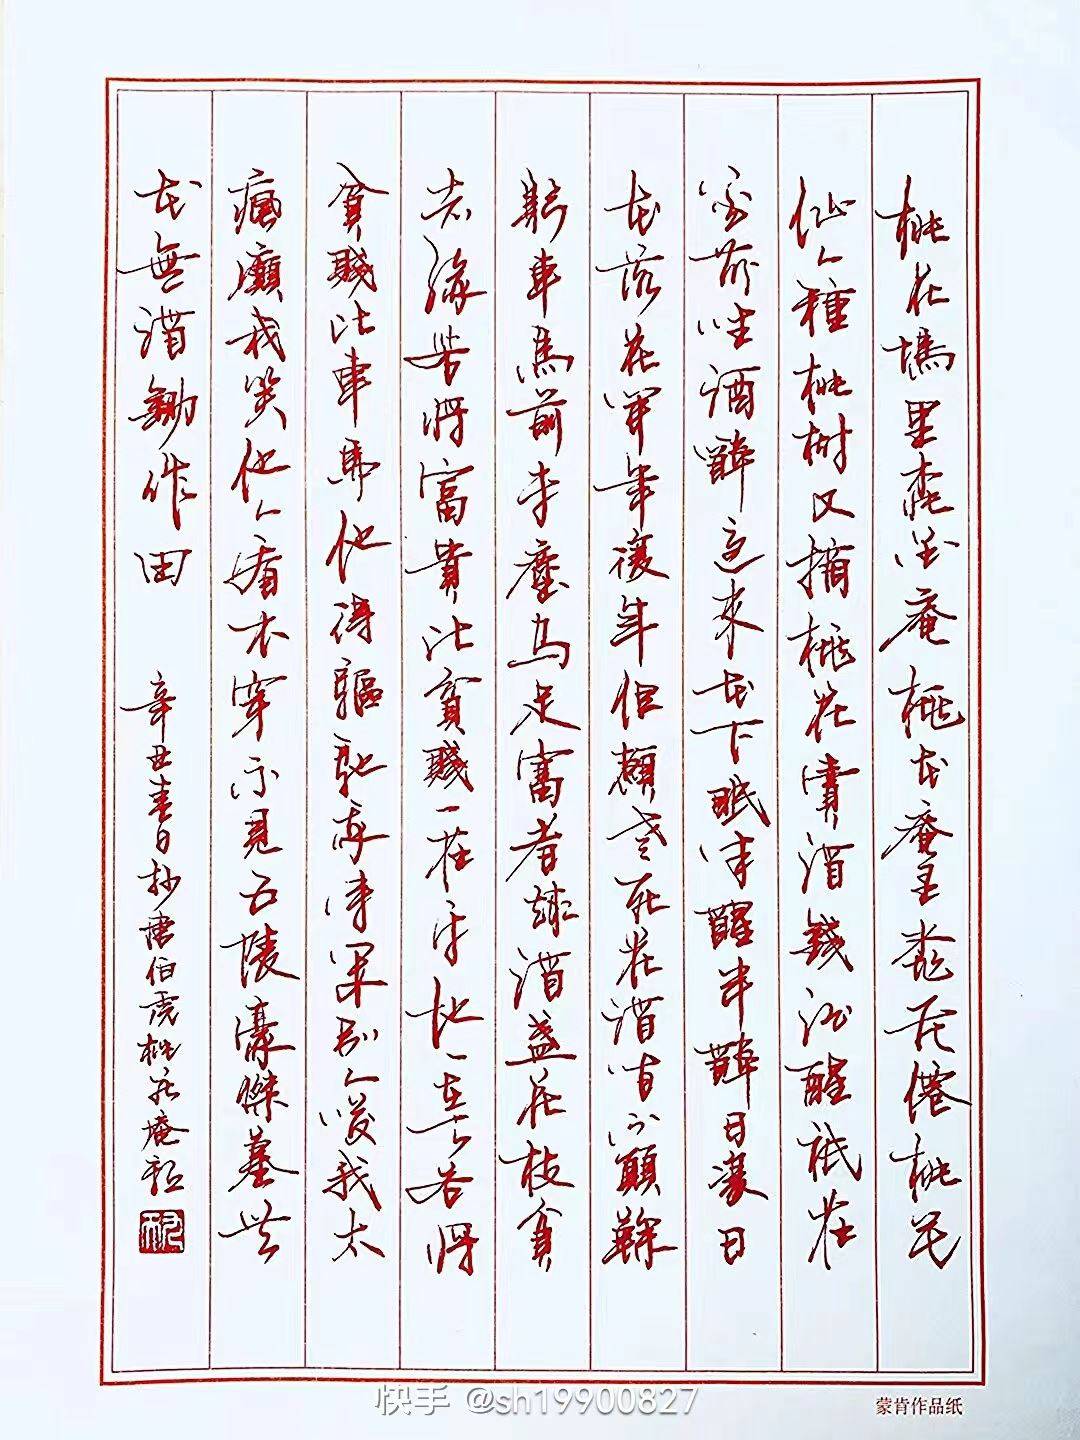 桃花塢里桃花庵桃花庵里桃花僊桃花
仙人種桃樹又摘桃花賣酒錢酒醒祇在
花前坐酒醉還來花下眠半醒半醉日復日
花落花開年復年但願老死花酒間不願鞠
躬車馬前車塵馬足富者趣酒盞花枝貧
者緣若將富貴比貧賤一在平地一在天若將
貧賤比車馬他得驅馳我得閑別人笑我太
瘋癲我笑他人看不穿不見五陵豪傑墓無
花無酒鋤作田
辛丑春日抄唐伯虎桃花庵歌
快手 @sh19900827
蒙肯作品纸